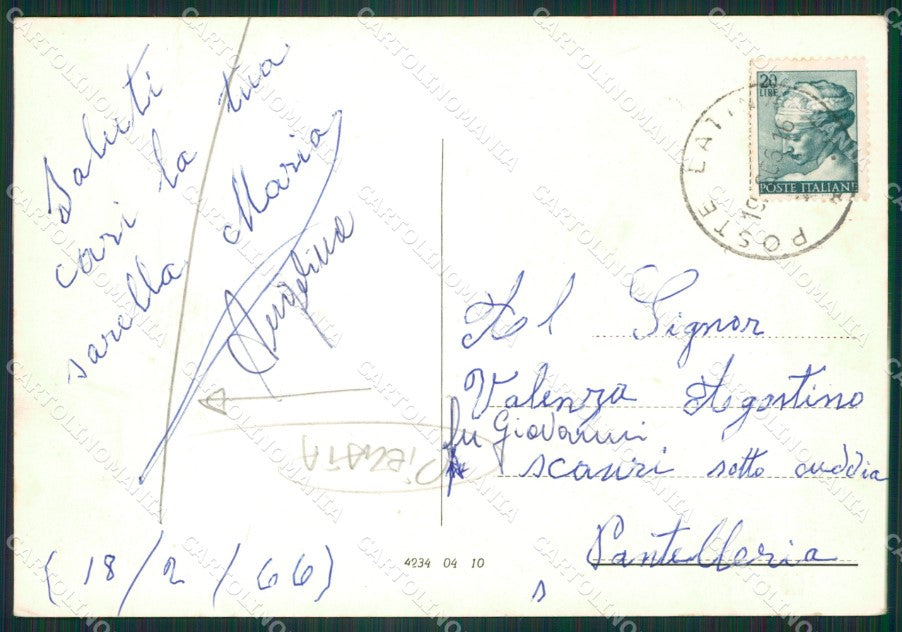 Saluti
cari la tua
sarella Maria
Angelina
(18/2/66)
4234 04 10
20
LIRE
POSTE ITALIANE
POSTE LATINA
Al Signor
Valenza Agostino
fu Giovanni
scauri sotto cuddia
Pantelleria
s
PIEGATA
CARTOLINOMANIA